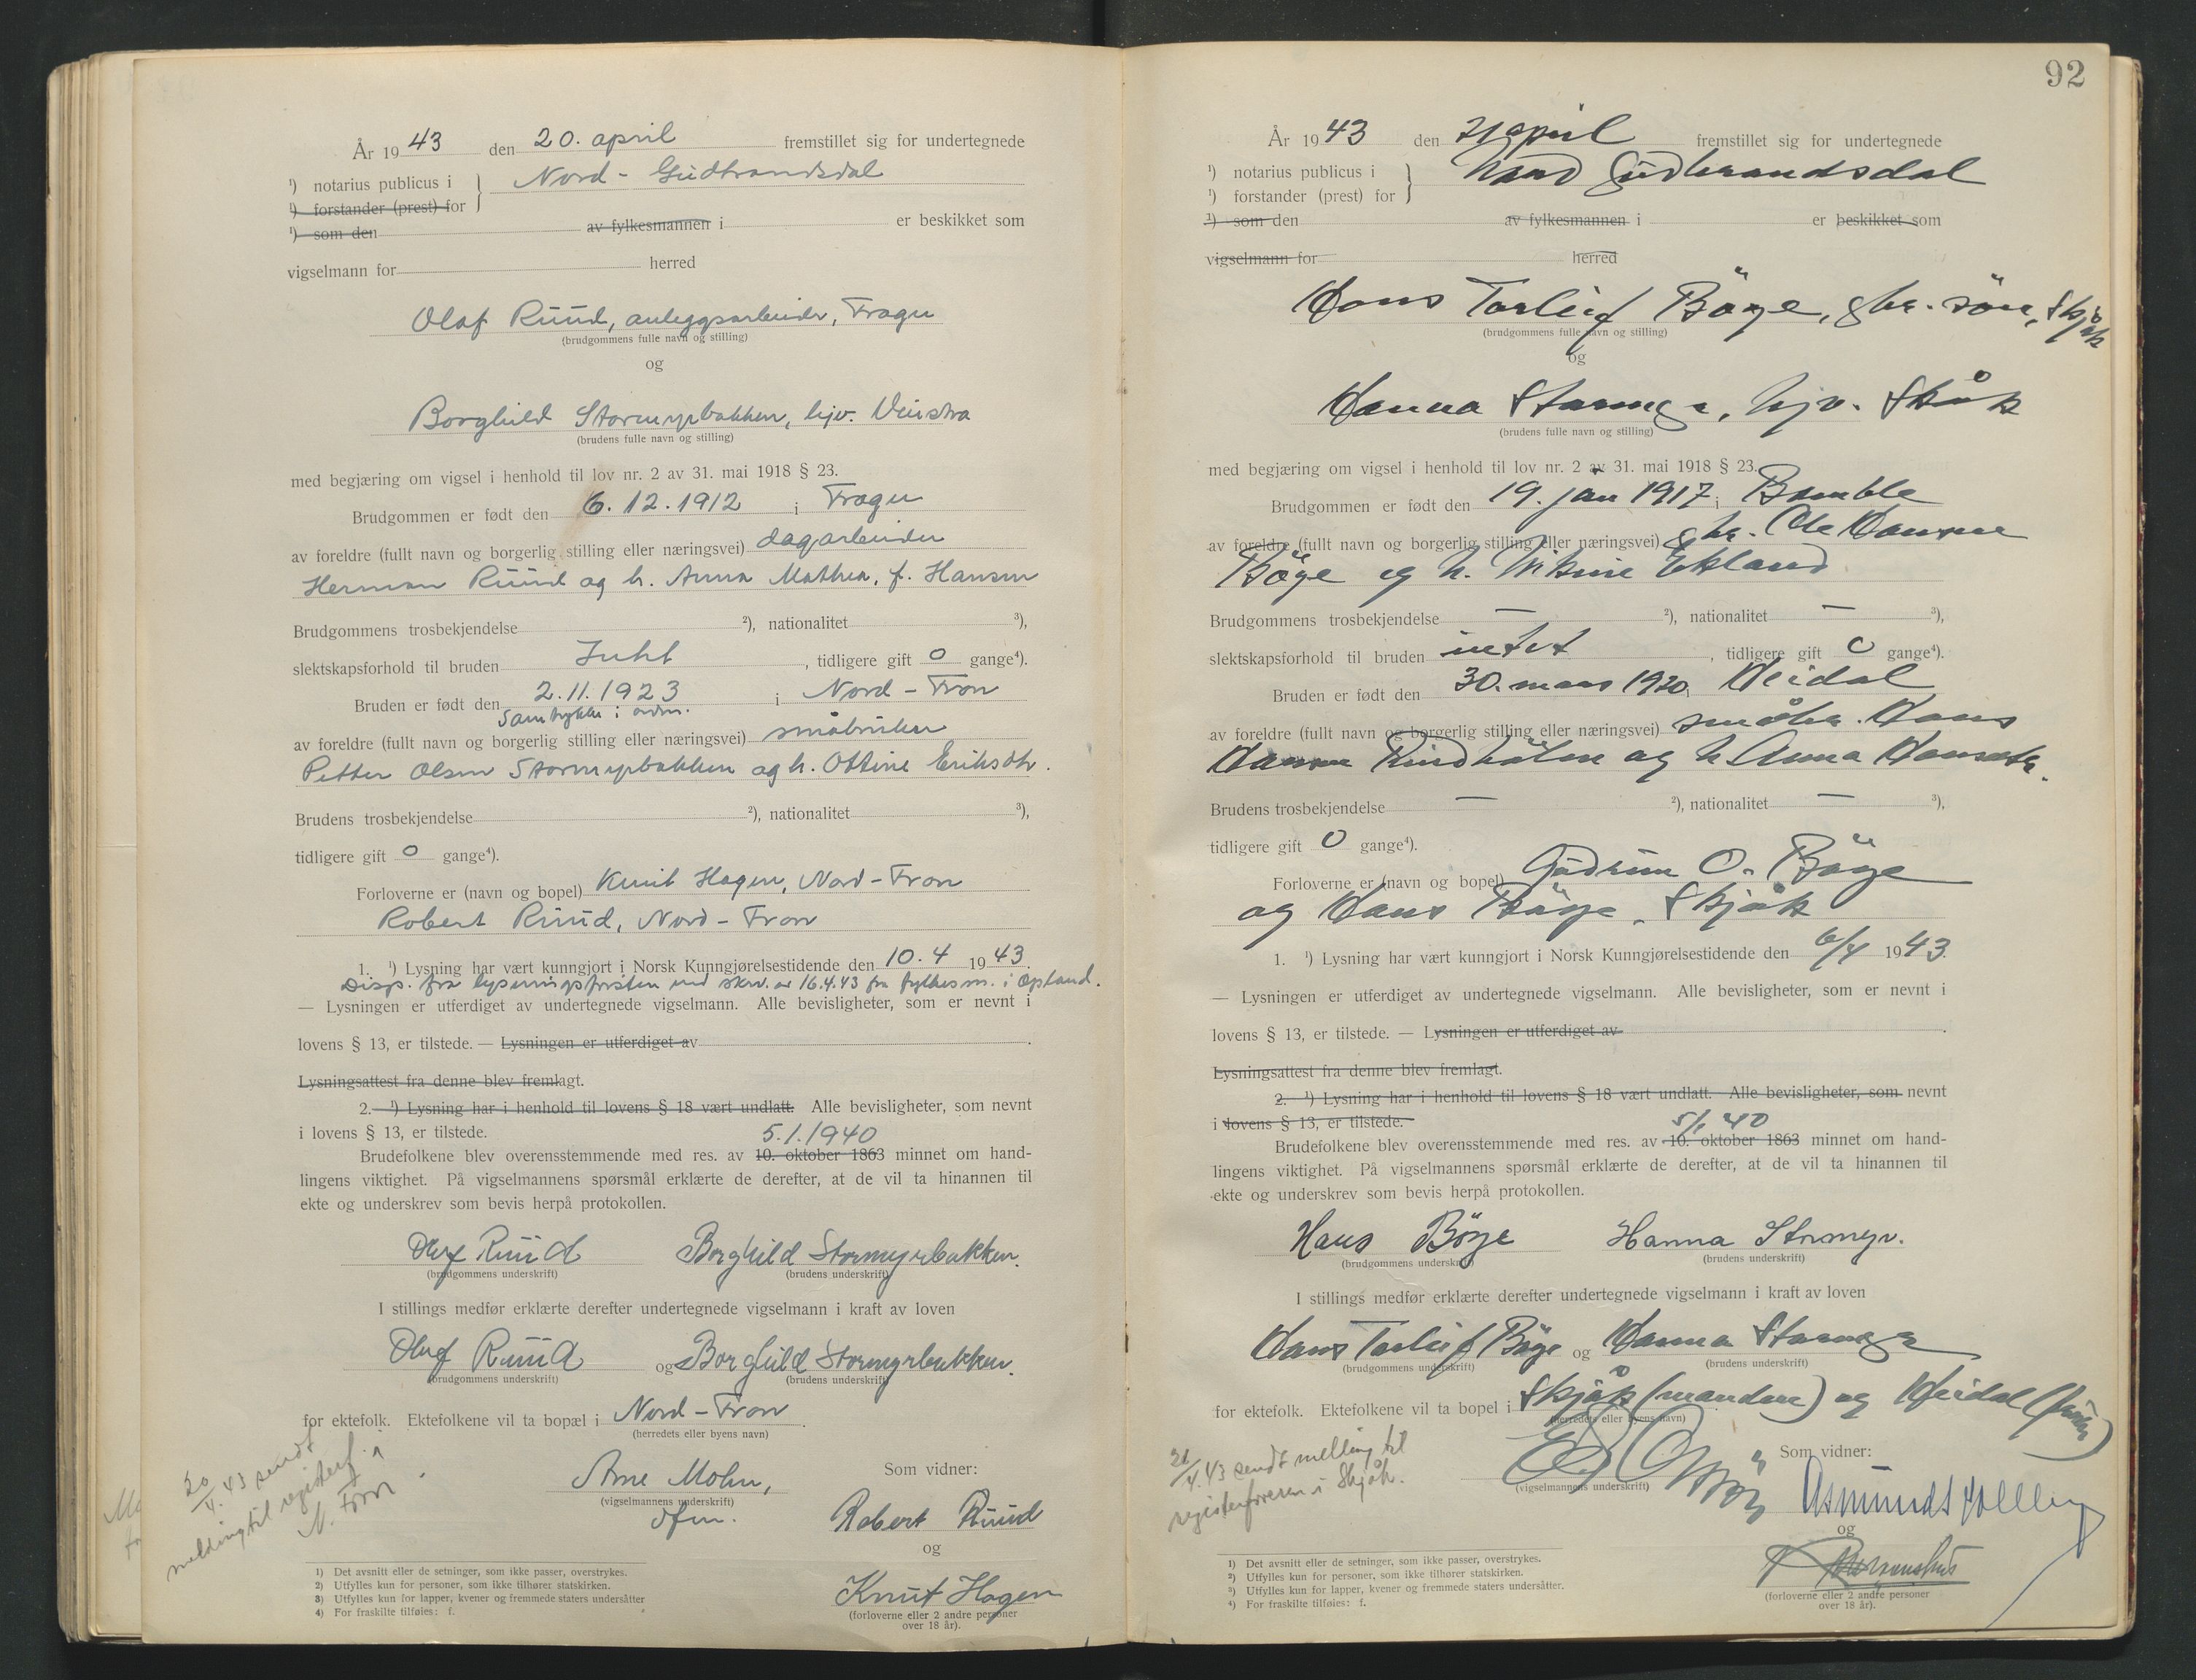 År 19 43 den 20. april fremstillet sig for undertegnede
¹) notarius publicus i } Nord - Gudbrandsdal
¹) forstander (prest) for
¹) som den av fylkesmannen i er beskikket som
vigselmann for herred
Olaf Ruud, anleggsarbeider, Frogn
(brudgommens fulle navn og stilling)
og
Borghild Stormyrbakken, hjv. Vinstra
(brudens fulle navn og stilling)
med begjæring om vigsel i henhold til lov nr. 2 av 31. mai 1918 § 23.
Brudgommen er født den 6.12.1912 i Frogn
av foreldre (fullt navn og borgerlig stilling eller næringsvei) dagarbeider
Herman Ruud og h. Anna Mathea, f. Hansen
Brudgommens trosbekjendelse ²), nationalitet ³),
slektskapsforhold til bruden Intet , tidligere gift 0 gange⁴).
Bruden er født den 2.11.1923 i Nord - Fron
Samtykke i orden.
av foreldre (fullt navn og borgerlig stilling eller næringsvei) småbruker
Petter Olsen Stormyrbakken og h. Ottine Eriksdtr.
Brudens trosbekjendelse ²), nationalitet ³),
tidligere gift 0 gange⁴).
Forloverne er (navn og bopel) Knut Hagen, Nord - Fron
Robert Ruud, Nord - Fron
1. ¹) Lysning har vært kunngjort i Norsk Kunngjørelsestidende den 10.4 19 43.
Disp. fra lysningsfristen ved skrv. av 16.4.43 fra fylkesm. i Opland.
— Lysningen er utferdiget av undertegnede vigselmann. Alle bevisligheter, som er nevnt i
lovens § 13, er tilstede. — Lysningen er utferdiget av .
Lysningsattest fra denne blev fremlagt.
2. ¹) Lysning har i henhold til lovens § 18 vært undlatt. Alle bevisligheter, som nevnt
i lovens § 13, er tilstede. 5.1.1940
Brudefolkene blev overensstemmende med res. av 10. oktober 1863 minnet om hand-
lingens viktighet. På vigselmannens spørsmål erklærte de derefter, at de vil ta hinannen til
ekte og underskrev som bevis herpå protokollen.
Olaf Ruud Borghild Stormyrbakken.
(brudgommens underskrift) (brudens underskrift)
I stillings medfør erklærte derefter undertegnede vigselmann i kraft av loven
Olaf Ruud og Borghild Stormyrbakken.
(brudgommens underskrift) (brudens underskrift)
for ektefolk. Ektefolkene vil ta bopæl i Nord - Fron .
(herredets eller byens navn)
20/4.43 sendt
melding til registerf. i
N. Fron
Arne Mohn, Som vidner:
(vigselmannens underskrift)
dfm. Robert Ruud
og
Knut Hagen
(forloverne eller 2 andre personer
over 18 år).
1) Det avsnitt eller de setninger, som ikke passer, overstrykes.
2) Utfylles kun for personer, som ikke tilhører statskirken.
3) Utfylles kun for lapper, kvener og fremmede staters undersåtter
4) For fraskilte tilføies: f.
92
År 19 43 den 21 april fremstillet sig for undertegnede
¹) notarius publicus i } Nord Gudbrandsdal
¹) forstander (prest) for
¹) som den av fylkesmannen i er beskikket som
vigselmann for herred
Hans Torleif Böye, gbr. sön, Skjåk
(brudgommens fulle navn og stilling)
og
Hanna Stormyr, hjv. Skjåk
(brudens fulle navn og stilling)
med begjæring om vigsel i henhold til lov nr. 2 av 31. mai 1918 § 23.
Brudgommen er født den 19. jan 1917 i Bamble
av foreldre (fullt navn og borgerlig stilling eller næringsvei) gbr. Ole Hansen
Böye og h. Nikoline Ekland
Brudgommens trosbekjendelse — ²), nationalitet — ³),
slektskapsforhold til bruden intet , tidligere gift 0 gange⁴).
Bruden er født den 30. mars 1920 Heidal
av foreldre (fullt navn og borgerlig stilling eller næringsvei) småbr. Hans
Hansen Rindhölen og h. Anna Hansdtr.
Brudens trosbekjendelse — ²), nationalitet — ³),
tidligere gift 0 gange⁴).
Forloverne er (navn og bopel) Gudrun O. Böye
og Hans Böye, Skjåk
1. ¹) Lysning har vært kunngjort i Norsk Kunngjørelsestidende den 6/4 19 43.
— Lysningen er utferdiget av undertegnede vigselmann. Alle bevisligheter, som er nevnt i
lovens § 13, er tilstede. — Lysningen er utferdiget av .
Lysningsattest fra denne blev fremlagt.
2. ¹) Lysning har i henhold til lovens § 18 vært undlatt. Alle bevisligheter, som nevnt
i lovens § 13, er tilstede. 5/1 40
Brudefolkene blev overensstemmende med res. av 10. oktober 1863 minnet om hand-
lingens viktighet. På vigselmannens spørsmål erklærte de derefter, at de vil ta hinannen til
ekte og underskrev som bevis herpå protokollen.
Hans Böye Hanna Stormyr.
(brudgommens underskrift) (brudens underskrift)
I stillings medfør erklærte derefter undertegnede vigselmann i kraft av loven
Hans Torleif Böye og Hanna Stormyr
(brudgommens underskrift) (brudens underskrift)
for ektefolk. Ektefolkene vil ta bopel i Skjåk (mannen) og Heidal
(herredets eller byens navn)
21/4.43 sendt melding til
registerföreren i Skjåk.
Som vidner:
(vigselmannens underskrift)
Asmund
og
(forloverne eller 2 andre personer
over 18 år).
¹) Det avsnitt eller de setninger, som ikke passer, overstrykes.
²) Utfylles kun for personer, som ikke tilhører statskirken.
³) Utfylles kun for lapper, kvener og fremmede staters undersåtter.
⁴) For fraskilte tilføies: f.